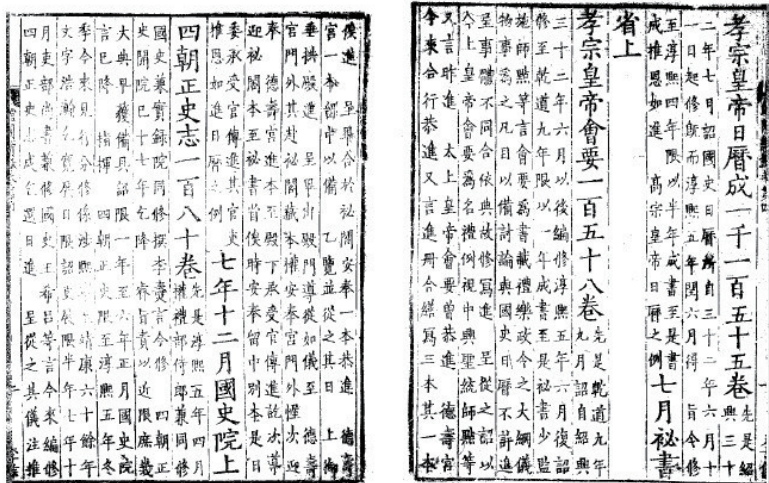 孝宗皇帝日曆成一千一百五十五卷
先是紹
興三十
二年七月詔國史日曆所自三十二年六月十
一日起修而淳熙五年閏六月得旨令修
至淳熙四年限以半年成書至是書
成推恩如進高宗皇帝日曆之例
七月祕書
省上
孝宗皇帝會要一百五十八卷
先是乾道九年
九月詔自紹興
三十二年六月以後編修淳熙五年六月復詔
修至乾道九年限以一年成書至是祕書少監
施師點等言會要爲書載禮樂政令之大綱儀
物事爲之凡目以備討論與國史日曆不許進
呈事體不同合依典故修寫進呈從之詔以
今上皇帝會要爲名禮例視中興聖統師點等
又言昨進太上皇帝會要曾恭進德壽宮
今來合行恭進又言進冊合繕寫三本其一本
俟進呈畢合於祕閣安奉一本恭進德壽
宮一本留中以備乙覽並從之其日上御
垂拱殿進呈畢出殿門導從如儀至德壽
宮門外其赴祕閣藏本權安奉宮門外幄次迎
奉德壽宮進本至殿下承受官傳進訖次導
迎祕閣本至祕書省俟時安奉留中別本是日
委承受官傳進其官吏
推恩如進日曆之例
七年十二月國史院上
四朝正史志一百八十卷
先是淳熙五年四月
權禮部侍郎兼同修
國史兼實錄院同修撰李燾言今修四朝正
史開院已十七年乞降睿旨責以近限庶幾
大典早獲備具詔限一年至六年正月國史院
言已降指揮四朝正史限至淳熙五年冬
季今來見行分修係涉熙靖康六十餘年
文字浩瀚展限詔更展限半年七年十
月吏部尚書兼修國史王希呂等言今來編修
四朝正史志成乞選日進呈從之其儀注推